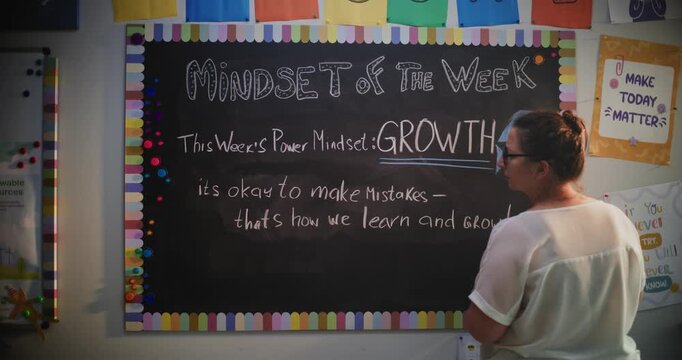 MINDSET OF THE WEEK
THIS WEEK'S POWER MINDSET: GROWTH
its okay to make Mistakes –
thats how we learn and GROW
MAKE
TODAY
MATTER
IF YOU
NEVER
TRY
YOU WILL
NEVER
KNOW.